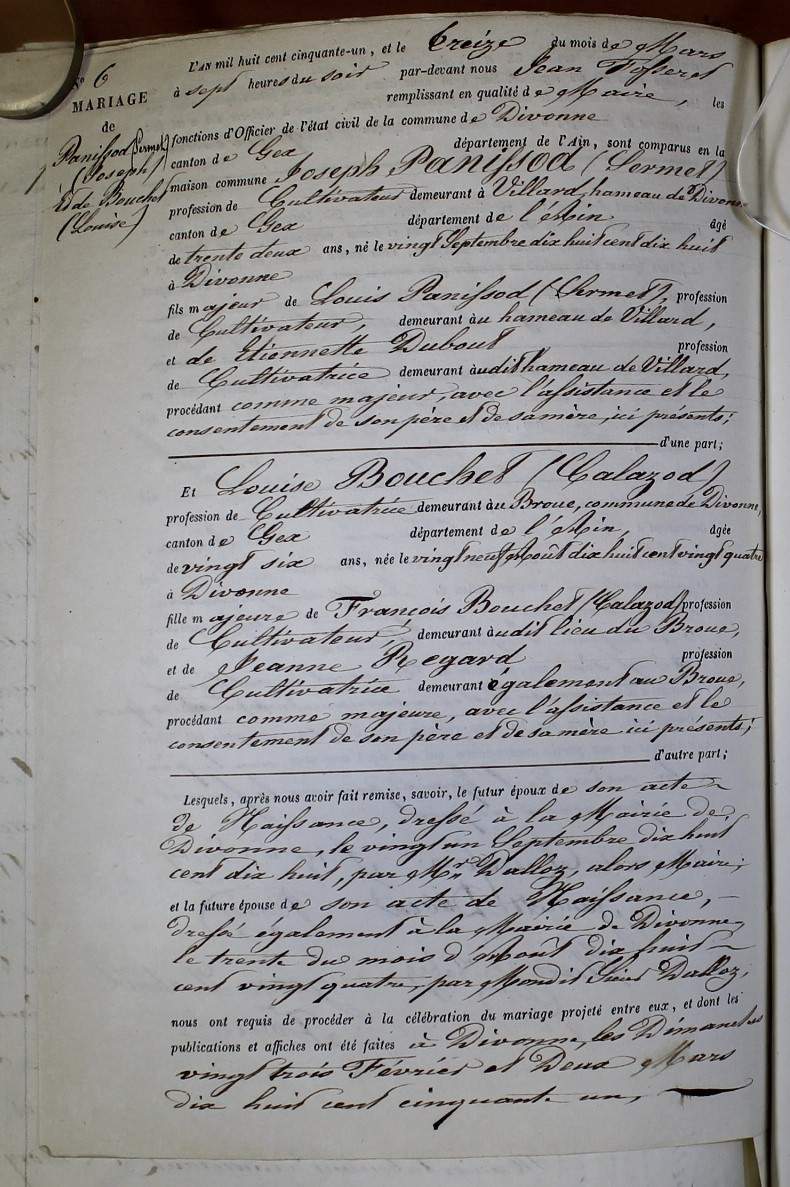 N° 6
MARIAGE
de
Panissod (Sermet)
(Joseph)
Et de Bouchet
(Louise)
L'AN mil huit cent cinquante-un, et le treize du mois de Mars
à sept heures du soir par-devant nous Jean
remplissant en qualité de Maire, les
fonctions d'Officier de l'état civil de la commune de Divonne
canton de Gex département de l'Ain, sont comparus en la
maison commune Joseph Panissod (Sermet)
profession de Cultivateur demeurant à Villard, hameau de Divonne
canton de Gex département de l'Ain âgé
de trente deux ans, né le vingt Septembre dix huit cent dix huit
à Divonne
fils majeur de Louis Panissod (Sermet), profession
de Cultivateur, demeurant au hameau de Villard,
et de Etiennette Dubout profession
de Cultivatrice demeurant audit hameau de Villard,
procédant comme majeur, avec l'assistance et le
consentement de son père et de sa mère, ici présents;
d'une part;
Et Louise Bouchet (Calazod)
profession de Cultivatrice demeurant au Broue, commune de Divonne,
canton de Gex département de l'Ain, âgée
de vingt six ans, née le vingt neuf Août dix huit cent vingt quatre
à Divonne
fille majeure de François Bouchet (Calazod) profession
de Cultivateur, demeurant audit lieu du Broue,
et de Jeanne Regard profession
de Cultivatrice demeurant également au Broue,
procédant comme majeure, avec l'assistance et le
consentement de son père et de sa mère ici présents;
d'autre part;
Lesquels, après nous avoir fait remise, savoir, le futur époux de son acte
de Naissance, dressé à la Mairie de
Divonne, le vingt un Septembre dix huit
cent dix huit, par Mr. Dalloz, alors Maire;
et la future épouse de son acte de Naissance,
dressé également à la Mairie de Divonne,
le trente du mois d'Août dix huit
cent vingt quatre, par Mondit Sieur Dalloz,
nous ont requis de procéder à la célébration du mariage projeté entre eux, et dont les
publications et affiches ont été faites à Divonne, les Dimanches
vingt trois Février et Deux Mars
dix huit cent cinquante un,